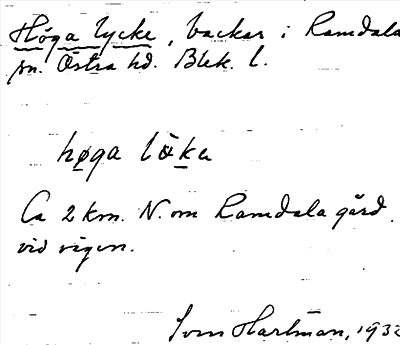 Höga lycke, backar i Ramdala
sn. Östra hd. Blek. l.
høga løka
Ca 2 km. N. om Ramdala gård
vid vägen.
Sven Hartman, 1932